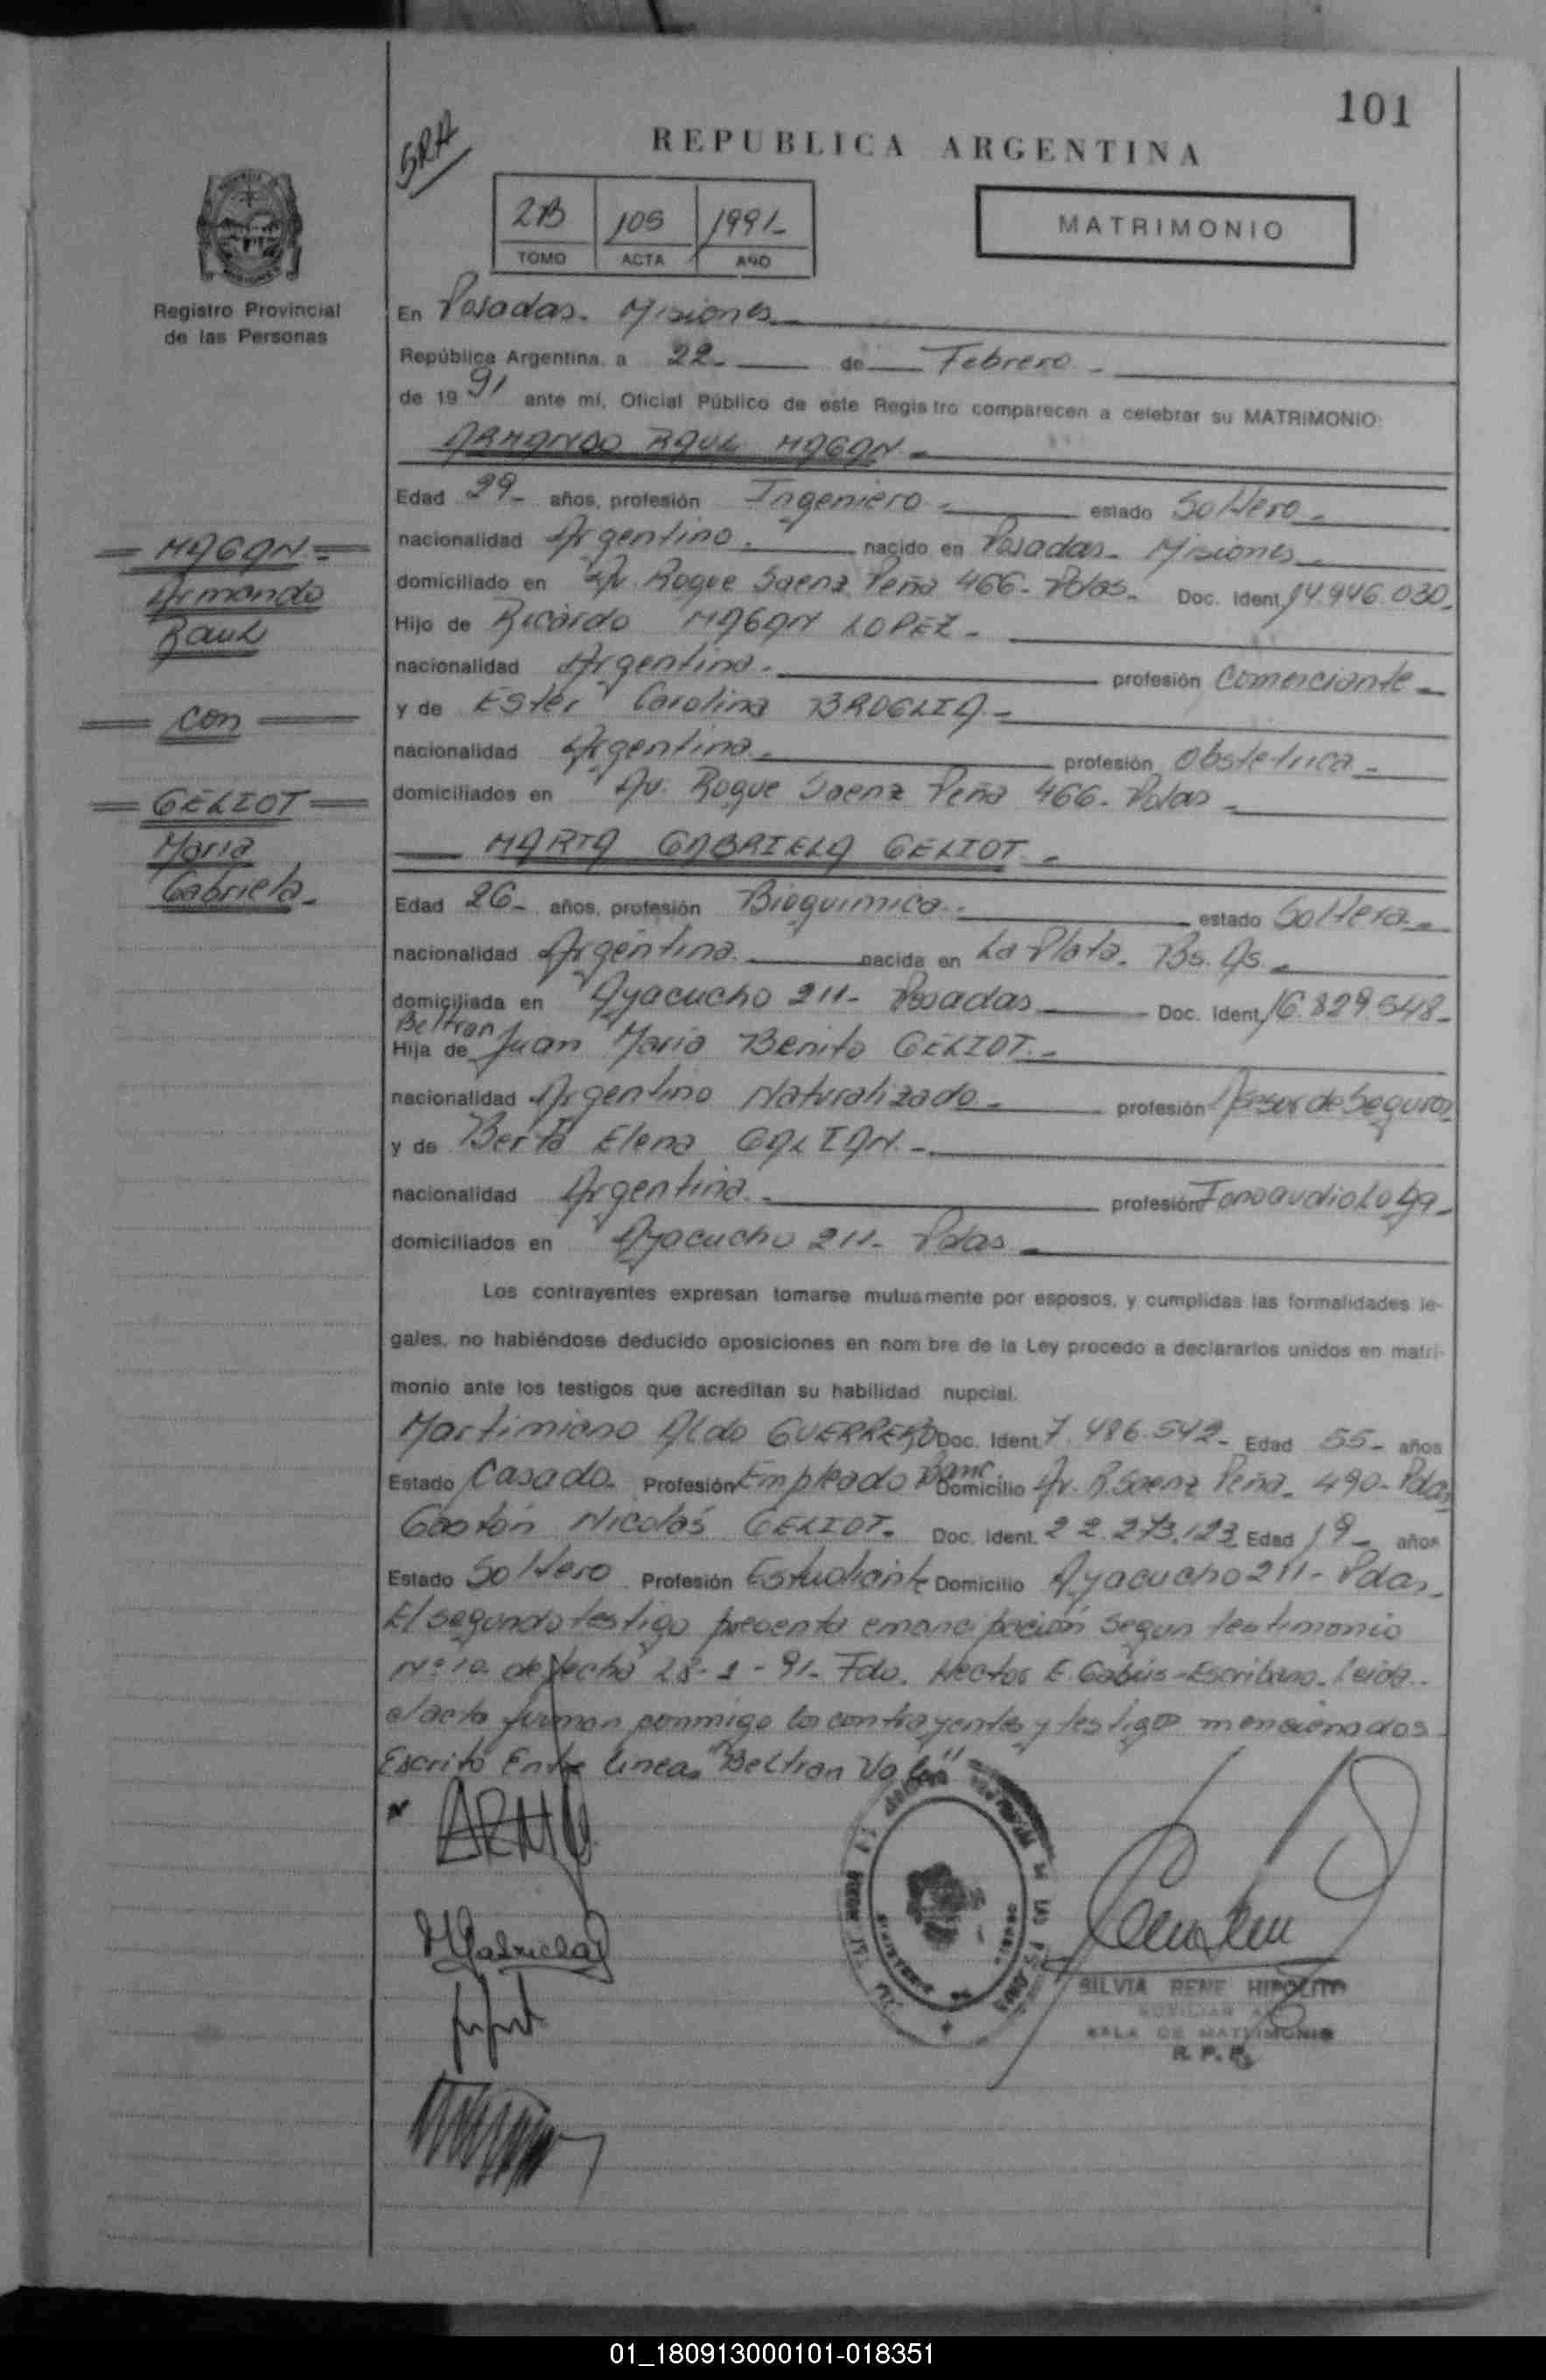 101
SRA
REPUBLICA ARGENTINA
2B 105 1991-
TOMO ACTA AÑO
MATRIMONIO
Registro Provincial
de las Personas
En Posadas. Misiones
República Argentina, a 22- de Febrero.-
de 1991 ante mí, Oficial Público de este Registro comparecen a celebrar su MATRIMONIO:
ARMANDO RAUL MAGAN-
Edad 29- años, profesión Ingeniero- estado Soltero-
nacionalidad Argentino. nacido en Posadas- Misiones-
domiciliado en Av. Roque Saenz Peña 466- Pdas- Doc. Ident. 14.946.030-
Hijo de Ricardo MAGAN LOPEZ-
nacionalidad Argentino.- profesión Comerciante-
y de Ester Carolina BROGLIA-
nacionalidad Argentina.- profesión Obstetrica-
domiciliados en Av. Roque Saenz Peña 466- Pdas-
MAGAN-
Armando
Raul
con
GELIOT
Maria
Gabriela-
MARIA GABRIELA GELIOT.-
Edad 26- años, profesión Bioquimica.- estado Soltera-
nacionalidad Argentina. nacida en La Plata- Bs. As.-
domiciliada en Ayacucho 211- Posadas Doc. Ident. 16.829.548-
Beltran
Hija de Juan Maria Benito GELIOT.-
nacionalidad Argentino Naturalizado- profesión Asesor de Seguros
y de Berta Elena GALIAN.-
nacionalidad Argentina.- profesión Fonoaudiologa-
domiciliados en Ayacucho 211- Pdas-
Los contrayentes expresan tomarse mutuamente por esposos, y cumplidas las formalidades le-
gales, no habiéndose deducido oposiciones en nom bre de la Ley procedo a declararlos unidos en matri-
monio ante los testigos que acreditan su habilidad nupcial.
Martimiano Aldo GUERRERO Doc. Ident. 7.486.542- Edad 55- años
Estado Casado- Profesión Empleado Banc. Domicilio Av. R. Saenz Peña- 490- Pdas
Gastón Nicolás GELIOT- Doc. Ident. 22.273.123 Edad 19- años
Estado Soltero Profesión Estudiante Domicilio Ayacucho 211- Pdas-
El segundo testigo presenta emancipación segun testimonio
Nº 10 de fecha 28-1-91- Fdo. Hector E. Escribano- leida
el acta firman conmigo los contrayentes y testigos mencionados
Escrito Entre lineas "Beltran Vale"
ARM
MGabriela
SILVIA RENE HIPOLITO
SALA DE MATRIMONIO
R. P. P.
01_180913000101-018351